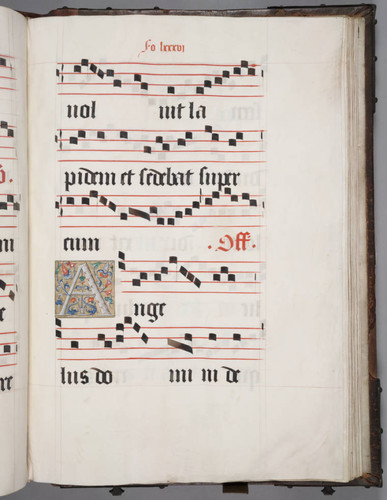 fo lxxxvi
uol uit la
pidem et sedebat super
eum . Off .
A nge
lus do mi ni de